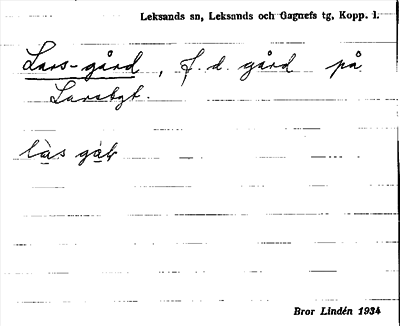 Leksands sn, Leksands och Gagnefs tg, Kopp. l.
Lars-gård, f.d. gård på
Larsbyt.
làs gàḷ
Bror Lindén 1934